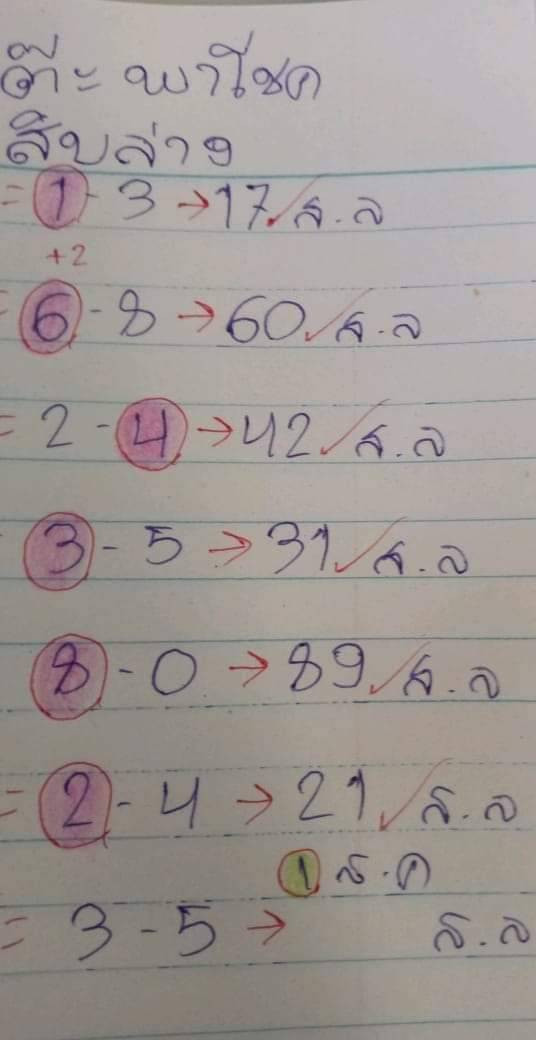 ต๊ะ พาโชค
สิบล่าง
= 1 - 3 → 17 ✓ ส.ล
+2
= 6 - 8 → 60 ✓ ส.ล
= 2 - 4 → 42 ✓ ส.ล
3 - 5 → 31 ✓ ส.ล
8 - 0 → 89 ✓ ส.ล
= 2 - 4 → 21 ✓ ส.ล
1 ส.ค
= 3 - 5 → ส.ล